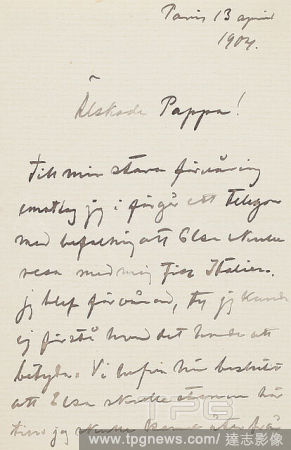 Paris 13 april
1904.
Älskade Pappa!
Till min stora förvåning
emottog jag i förgår ett telegr
med befallning att Elsa skulle
resa med mig till Italien.
jag blef förvånad, ty jag kunde
ej förstå hvad det hade att
betyda. Vi hafva nu beslutit
att Elsa skulle stanna här
tills jag skulle komma
TPG
www.tpgnews.com/ 達志影像